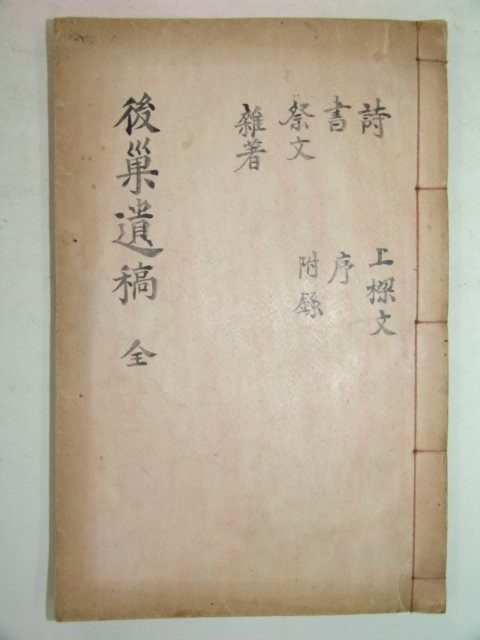 後巢遺稿 全
詩
書
祭文
雜著
上樑文
序
附錄